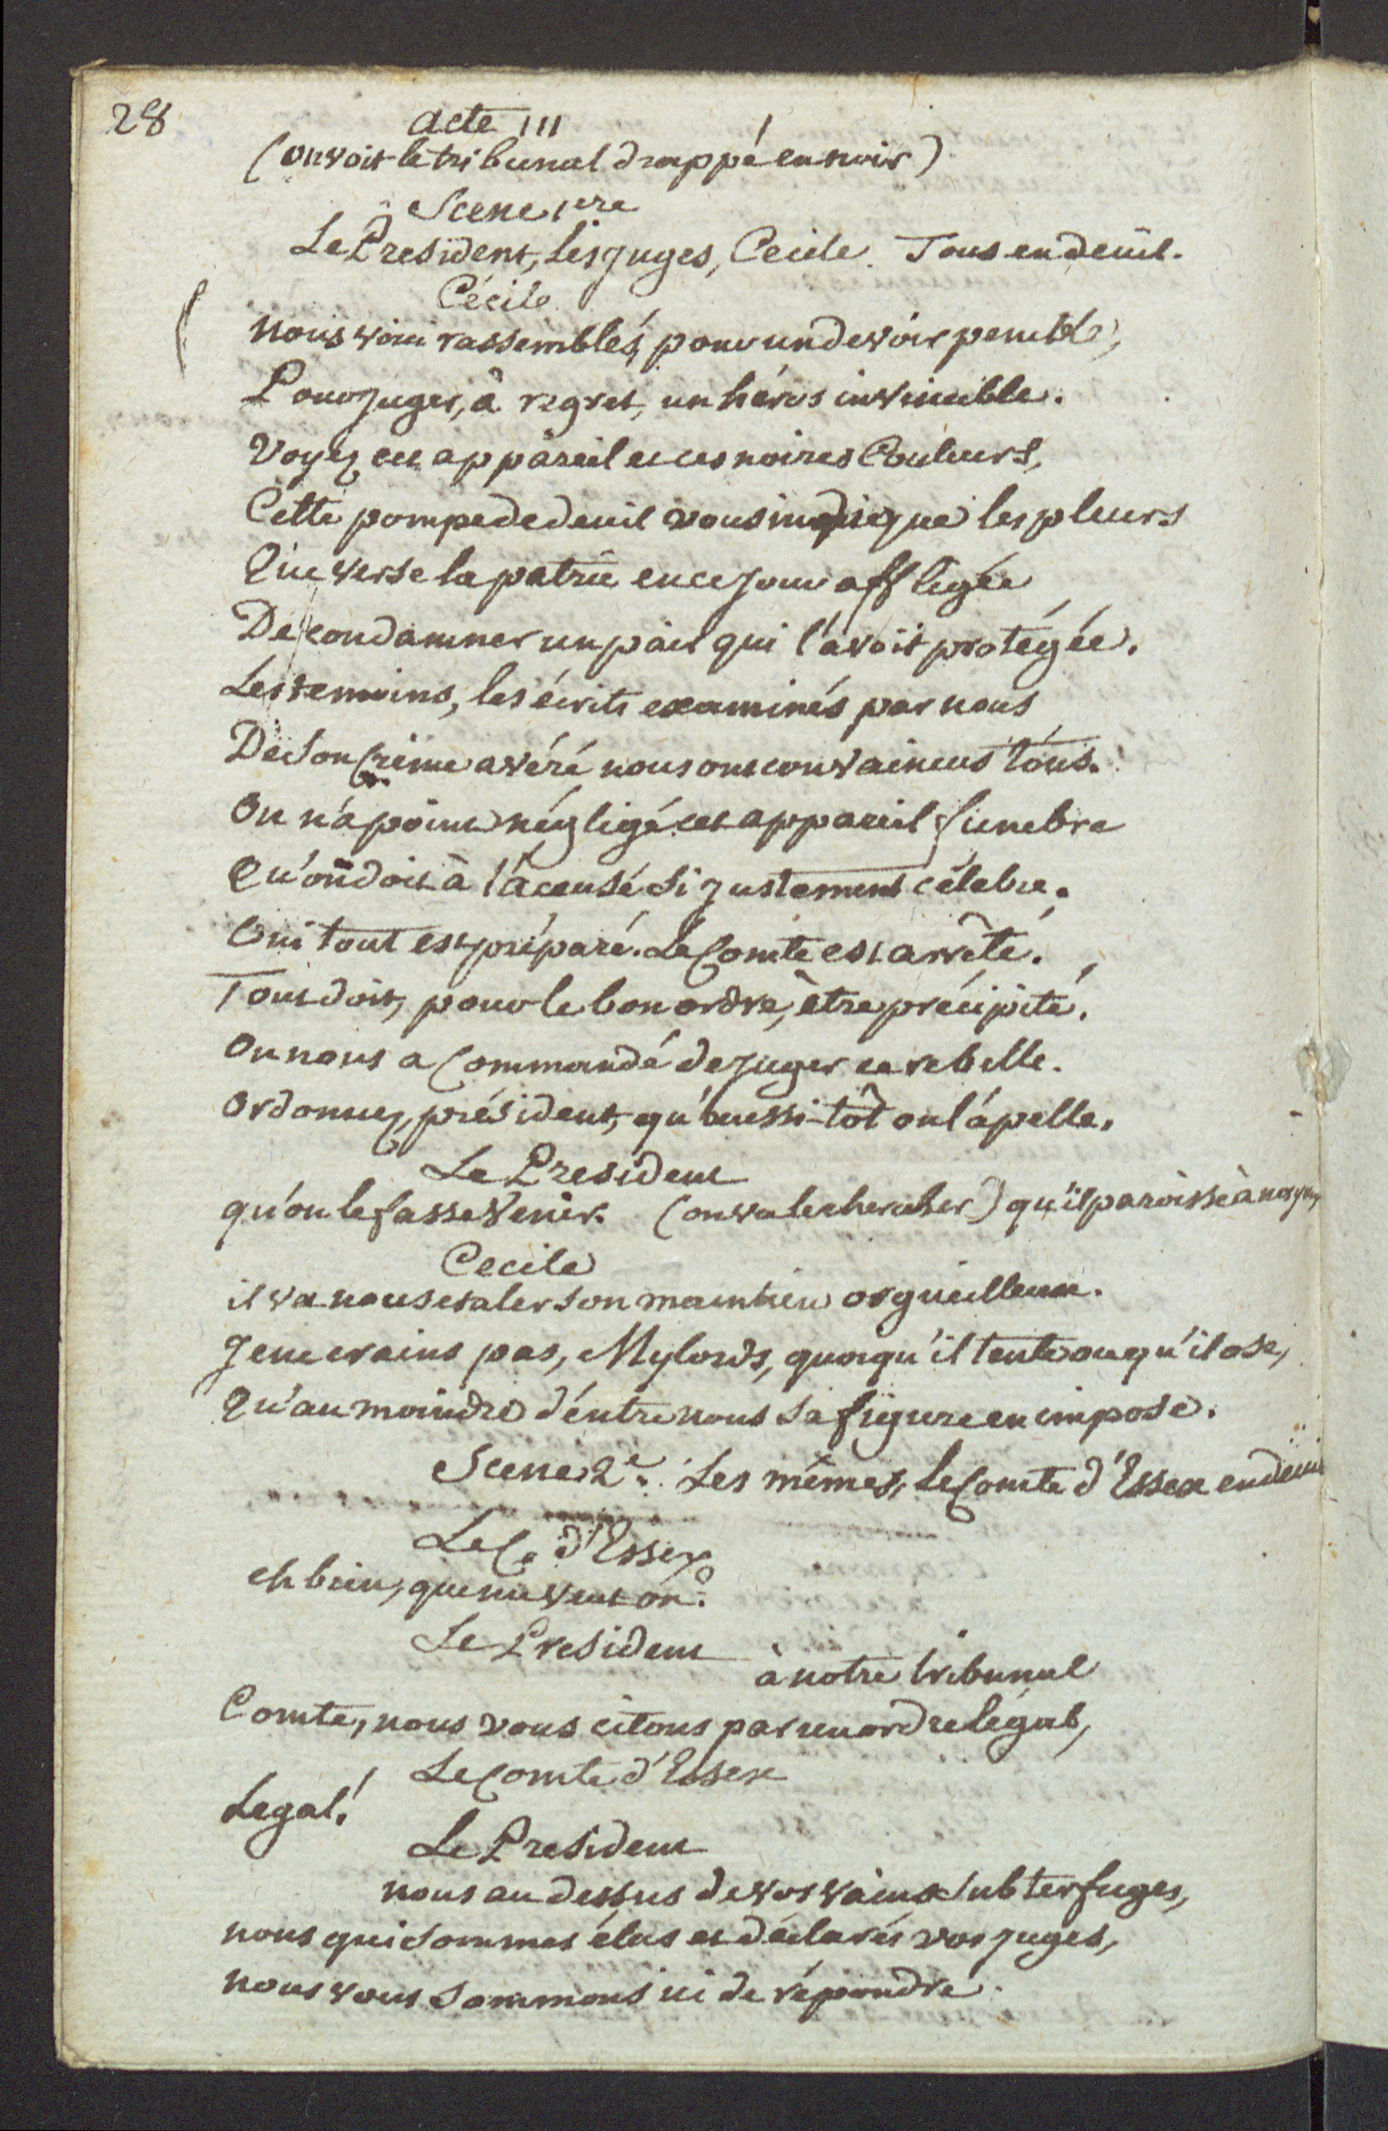 28
acte III
(on voit le tribunal drappé en noir)
Scene 1ere
Le President, les juges, Cecile. Tous en deuil.
Cécile
Nous voici rassemblés, pour un devoir penible,
Pour juger, à regret, un héros invincible.
Voyez cet appareil et ces noires Couleurs,
Cette pompe de deuil vous indique les pleurs
Que verse la patrie en ce jour affligée
De condamner un pair qui l'avoit protégée.
Les temoins, les écrits examinés par nous
De son Crime avéré nous ont convaincus tous.
On n'a point négligé cet appareil funebre
Qu'on doit à l'accusé si justement célebre.
Oui tout est préparé. Le Comte est arrêté.
Tout doit, pour le bon ordre, être précipité.
On nous a Commandé de juger ce rebelle.
Ordonnez, président, qu'aussi-tôt on l'apelle.
Le President
qu'on le fasse venir. (on va le chercher) qu'il paroisse à nos yeux
Cecile
il va nous etaler son maintien orgueilleux.
Je ne crains pas, Mylords, quoiqu'il tente ou qu'il ose,
Qu'au moindre d'entre nous sa figure en impose.
Scene 2e. Les mêmes, le Comte d'Essex en deuil
Le Ce d'Essex
eh bien, que me veut on?
Le President
à notre tribunal
Comte, nous vous citons par un ordre légal,
Le Comte d'Essex
Legal!
Le President
nous au dessus de vos vains subterfuges,
nous qui sommes élus et déclarés vos juges,
nous vous sommons ici de répondre.